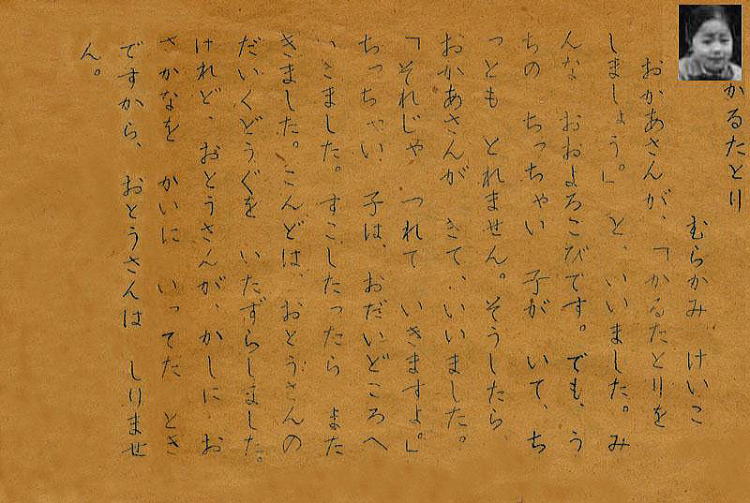 かるたとり
むらかみ けいこ
おかあさんが、「かるたとりを
しましょう。」 と、いいました。み
んな おおよろこびです。でも、う
ちの ちっちゃい 子が いて、ち
っとも とれません。そうしたら、
おかあさんが きて、いいました。
「それじゃ つれて いきますよ。」
ちっちゃい 子は、おだいどころへ
いきました。すこしたったら また
きました。こんどは、おとうさんの
だいくどうぐを いたずらしました。
けれど、おとうさんが、かしに、お
さかなを かいに いってた とき
ですから、おとうさんは しりませ
ん。